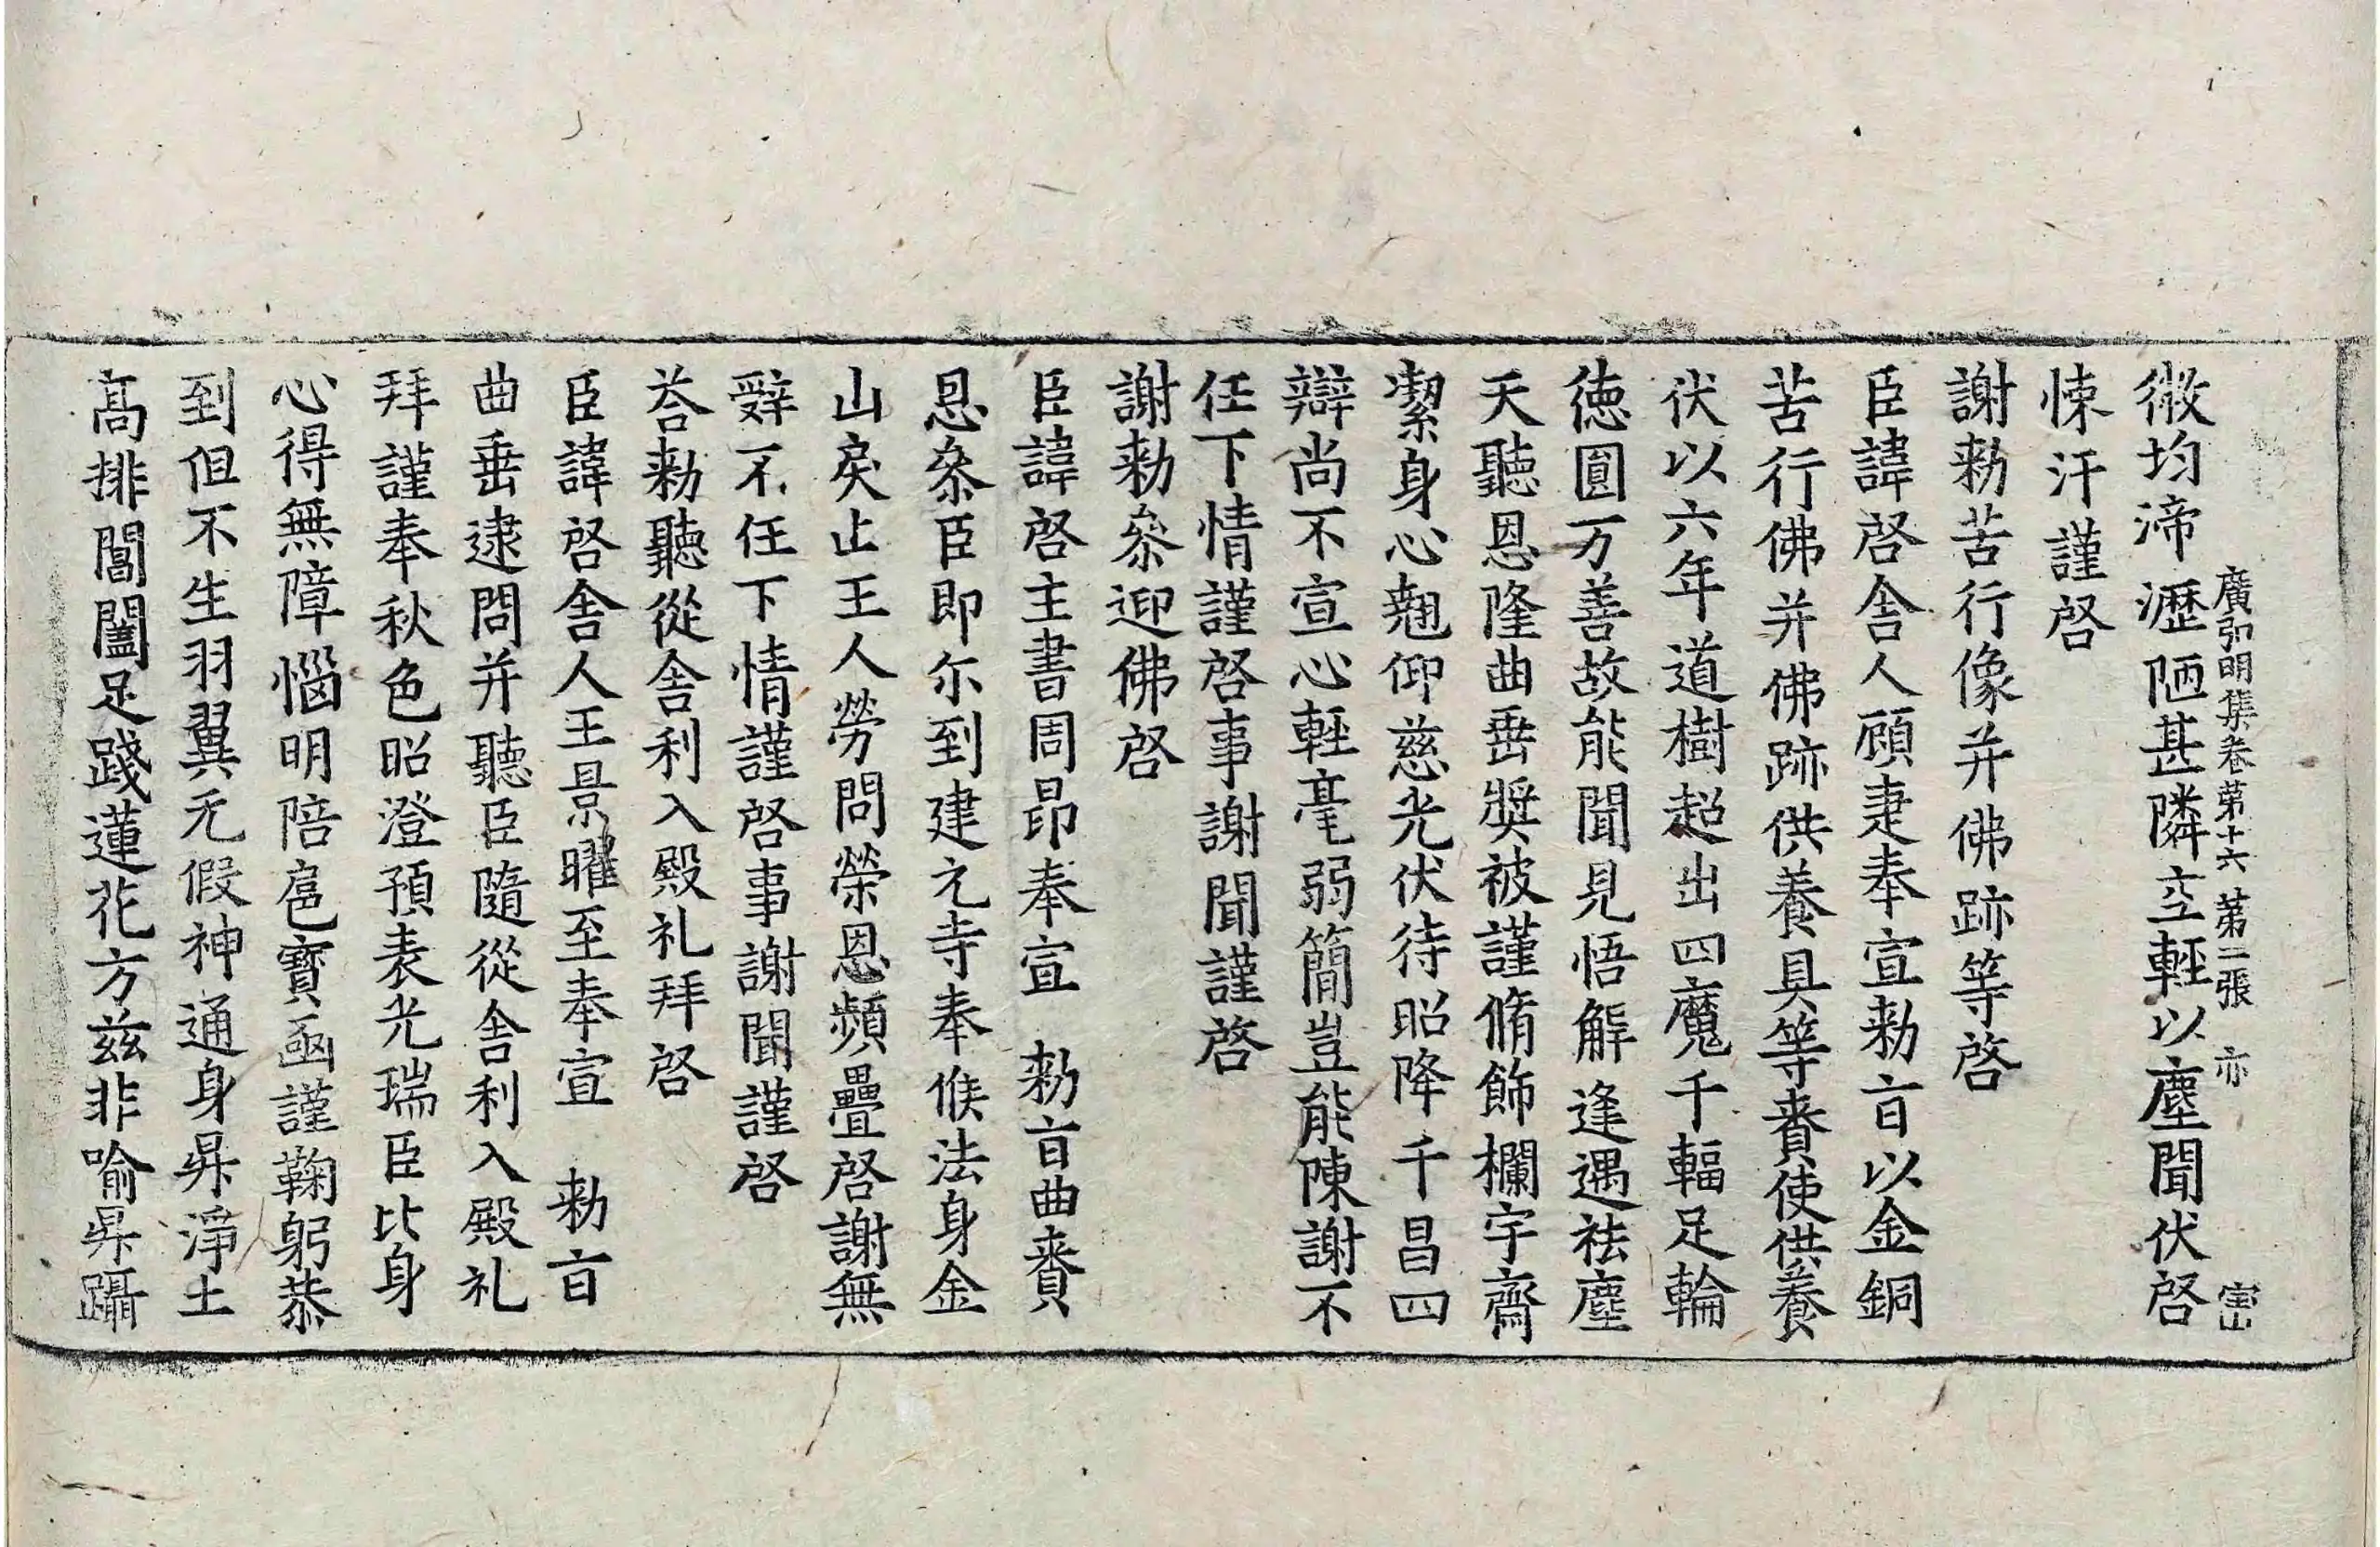 廣弘明集卷第十六 第二張 亦
微均渧瀝陋甚隣空輕以塵聞伏啓
悚汗謹啓
謝勑苦行像并佛跡等啓
臣諱啓舍人顧㨗奉宣勑旨以金銅
苦行佛并佛跡供養具等賚使供養
伏以六年道樹超出四魔千輻足輪
德圓万善故能聞見悟解逢遇祛塵
天聽恩隆曲垂奬被謹脩飾欄宇齋
潔身心翹仰慈光伏待昭降千昌四
辯尚不宣心輕毫弱簡豈能陳謝不
任下情謹啓事謝聞謹啓
謝勑叅迎佛啓
臣諱啓主書周昂奉宣 勑旨曲賚
恩叅臣即尓到建元寺奉候法身金
山戾止王人勞問榮恩頻疊啓謝無
辭不任下情謹啓事謝聞謹啓
荅勑聽從舍利入殿礼拜啓
臣諱啓舍人王景曜至奉宣 勑旨
曲垂逮問并聽臣隨從舍利入殿礼
拜謹奉秋色昭澄預表光瑞臣比身
心得無障惱明陪扈寶函謹鞠躬恭
到但不生羽翼无假神通身昇淨土
高排閶闔足踐蓮花方兹非喻昇躡